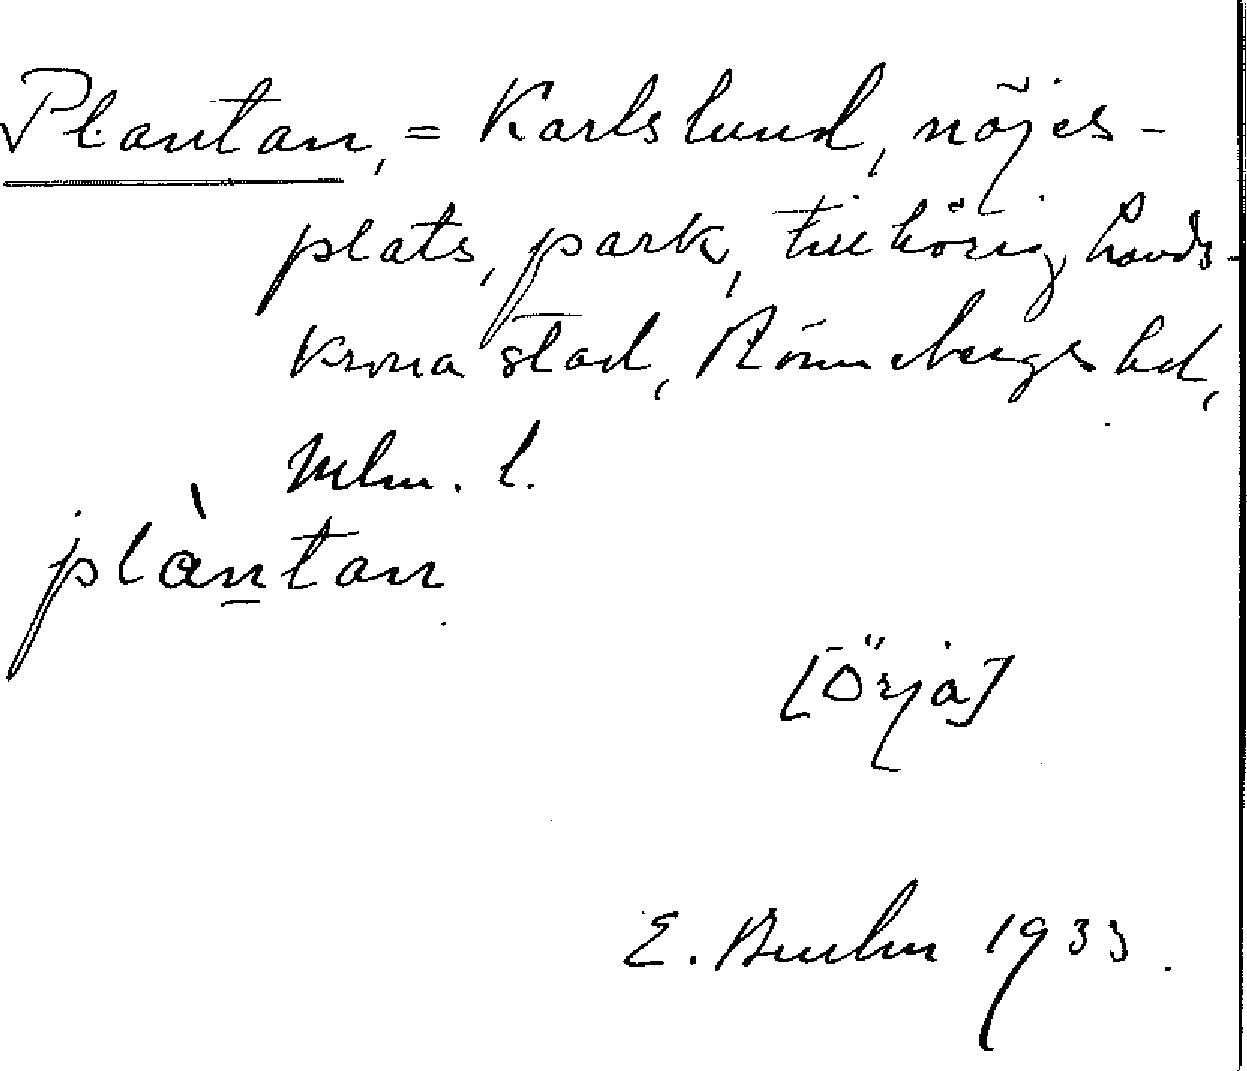 Plantan, = Karlslund, nöjes-
plats, park, tillhörig Lands-
krona stad, Rönnebergs hd,
Mlm. l.
plàn̲tan
[Örja]
E. 1933.